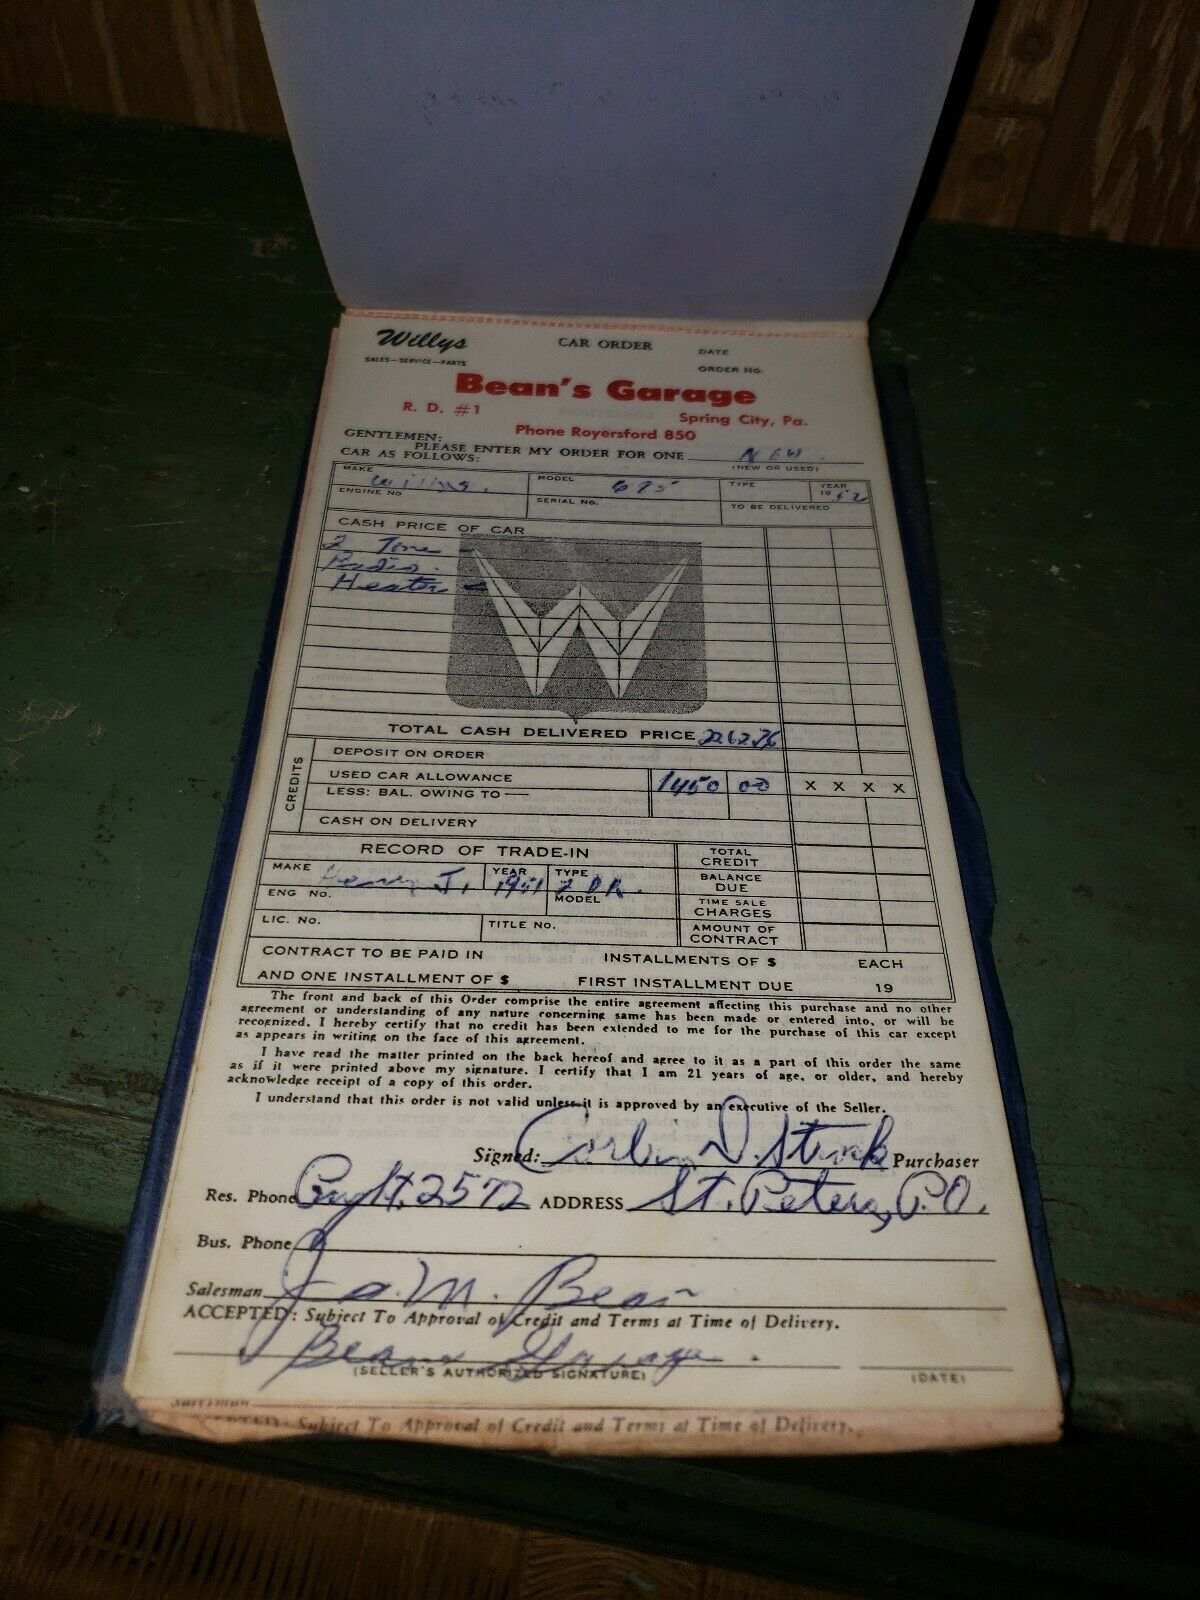 Willys CAR ORDER DATE
SALES—SERVICE—PARTS ORDER NO.
Bean's Garage
R. D. #1 Spring City, Pa.
Phone Royersford 850
GENTLEMEN:
PLEASE ENTER MY ORDER FOR ONE NEW
CAR AS FOLLOWS: (NEW OR USED)
MAKE Willys. MODEL 675 TYPE YEAR 1952
ENGINE NO SERIAL NO. TO BE DELIVERED
CASH PRICE OF CAR
2 Tone
Radio.
Heater
TOTAL CASH DELIVERED PRICE 2262.76
CREDITS
DEPOSIT ON ORDER
USED CAR ALLOWANCE 1450 00 X X X X
LESS: BAL. OWING TO —
CASH ON DELIVERY
RECORD OF TRADE-IN TOTAL CREDIT
MAKE Henry J. YEAR 1951 TYPE 2 DR. BALANCE DUE
ENG NO. MODEL TIME SALE CHARGES
LIC. NO. TITLE NO. AMOUNT OF CONTRACT
CONTRACT TO BE PAID IN INSTALLMENTS OF $ EACH
AND ONE INSTALLMENT OF $ FIRST INSTALLMENT DUE 19
The front and back of this Order comprise the entire agreement affecting this purchase and no other
agreement or understanding of any nature concerning same has been made or entered into, or will be
recognized. I hereby certify that no credit has been extended to me for the purchase of this car except
as appears in writing on the face of this agreement.
I have read the matter printed on the back hereof and agree to it as a part of this order the same
as if it were printed above my signature. I certify that I am 21 years of age, or older, and hereby
acknowledge receipt of a copy of this order.
I understand that this order is not valid unless it is approved by an executive of the Seller.
Signed: D. Purchaser
Res. Phone 2572 ADDRESS St. Peters, P.O.
Bus. Phone
Salesman M. Bean
ACCEPTED: Subject To Approval of Credit and Terms at Time of Delivery.
Beans Garage.
(SELLER'S AUTHORIZED SIGNATURE) (DATE)
Salesman
ACCEPTED: Subject To Approval of Credit and Terms at Time of Delivery.